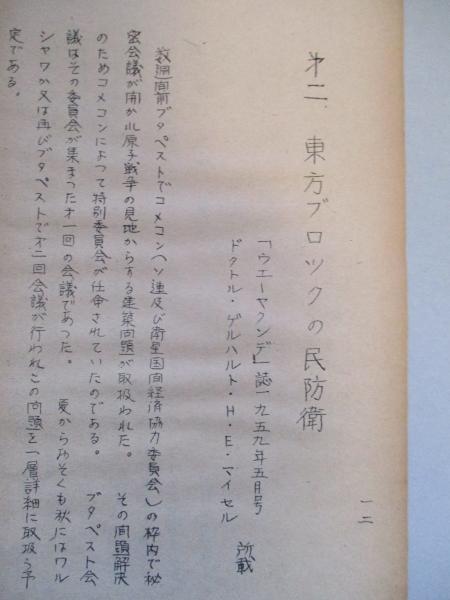 一二
才二、東方ブロックの民防衛
「ウエーヤクンデ」誌一九五九年五月号
所載
ドクトル・ゲルハルト・H・E・マイセル
数週间前ブタペストでコメコン(ソ連及び衛星国间経済協力委員会)の枠内で秘
密会議が開かれ原子戦争の見地からする建築问題が取扱われた。　その问題解決
のためコメコンによつて特別委員会が任命されていたのである。　ブタペスト会
議はその委員会が集まつた才一回の会議であつた。　夏からおそくも秋にはワル
シヤワか又は再びブタペストで才二回会議が行われこの问題を一層詳細に取扱う予
定である。